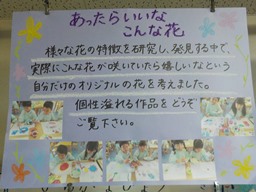 あったらいいな
こんな花
様々な花の特徴を研究し、発見する中で、
実際にこんな花が咲いていたら嬉しいなという
自分だけのオリジナルの花を考えました。
個性溢れる作品をどうぞ
ご覧下さい。